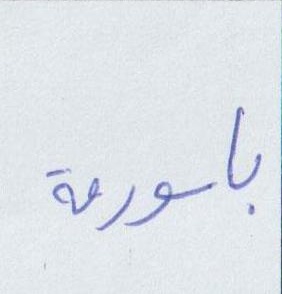 باسورمة